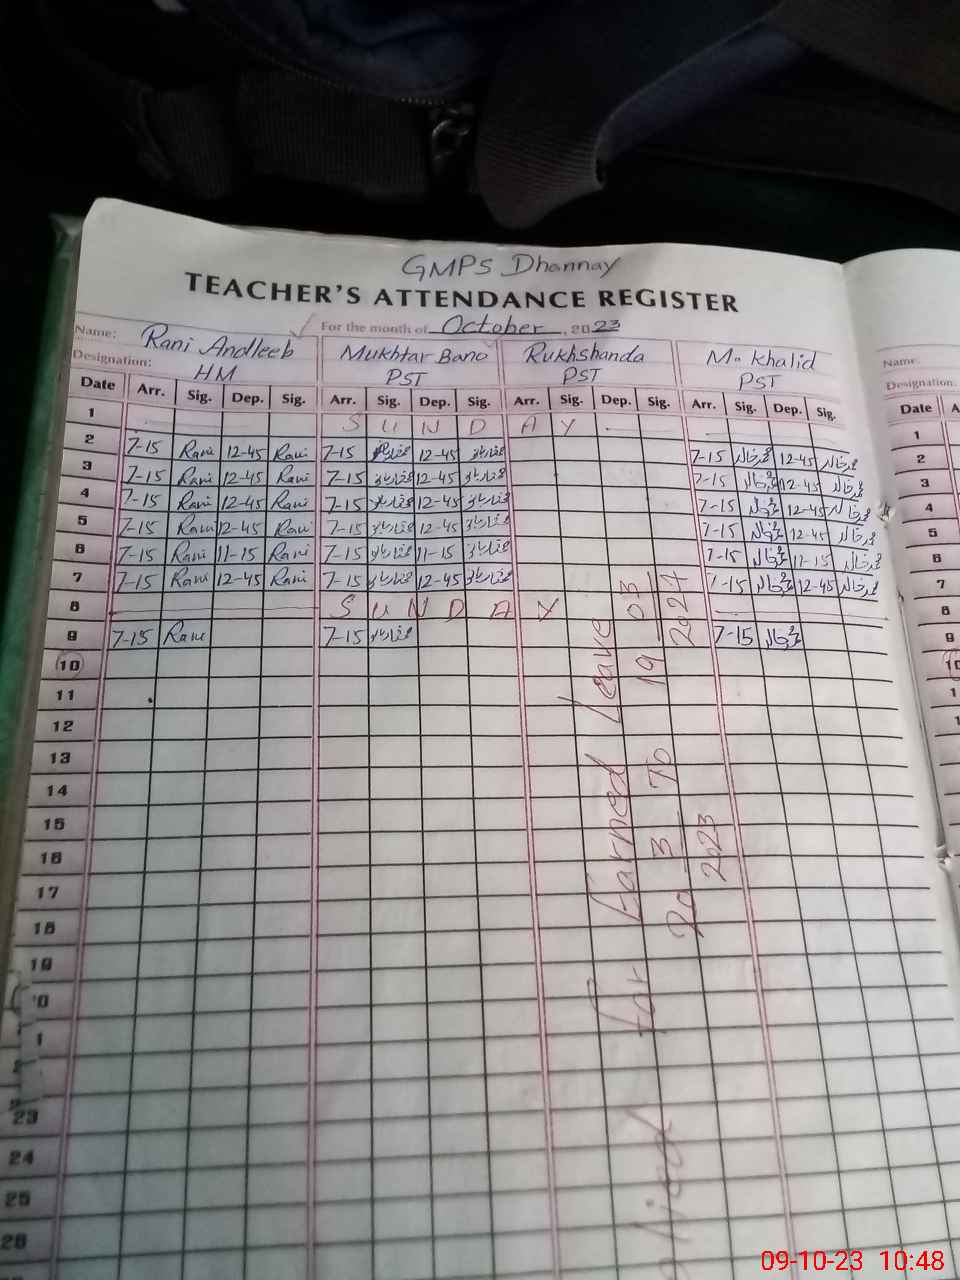 GMPS Dhannay
TEACHER'S ATTENDANCE REGISTER
For the month of October, 2023
Name: Rani Andleeb Mukhtar Bano Rukhshanda M. Khalid Name:
Designation: HM PST PST PST Designation:
Date Arr. Sig. Dep. Sig. Arr. Sig. Dep. Sig. Arr. Sig. Dep. Sig. Arr. Sig. Dep. Sig. Date
1 S U N D A Y 1
2 7-15 Rani 12-45 Rani 7-15 12-45 7-15 12-45 2
3 7-15 Rani 12-45 Rani 7-15 12-45 7-15 12-45 3
4 7-15 Rani 12-45 Rani 7-15 12-45 7-15 12-45 4
5 7-15 Rani 12-45 Rani 7-15 12-45 7-15 12-45 5
6 7-15 Rani 11-15 Rani 7-15 11-15 7-15 11-15 6
7 7-15 Rani 12-45 Rani 7-15 12-45 7-15 12-45 7
8 S U N D A Y 8
9 7-15 Rani 7-15 7-15 9
10 10
11
12
13
14
15
16
17
18
19
23
24
25
26
for Earned Leave
20 3 2023 To 19 03 2024
09-10-23 10:48